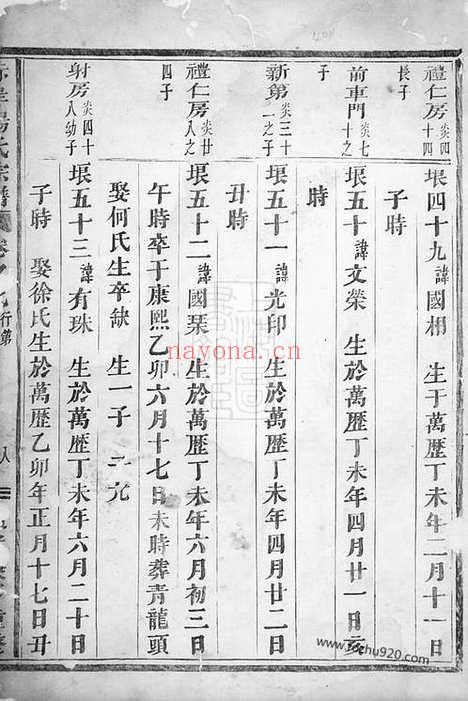 禮仁房 炎四十四 長子 垠四十九 諱國相 生于萬歷丁未年二月十一日
子時
前車門 炎七十之子 垠五十 諱文榮 生於萬歷丁未年四月廿一日亥
時
新第 炎三十一之子 垠五十一 諱光印 生於萬歷丁未年四月廿二日
丑時
禮仁房 炎廿八之四子 垠五十二 諱國琹 生於萬歷丁未年六月初三日
午時卒于康熙乙卯六月十七日未時葬青龍頭
娶何氏生卒缺 生一子 二允
射房 炎四十八幼子 垠五十三 諱有珠 生於萬歷丁未年六月二十日
子時 娶徐氏生於萬歷乙卯年正月十七日丑
氏宗譜 卷 行第
nayona.cn